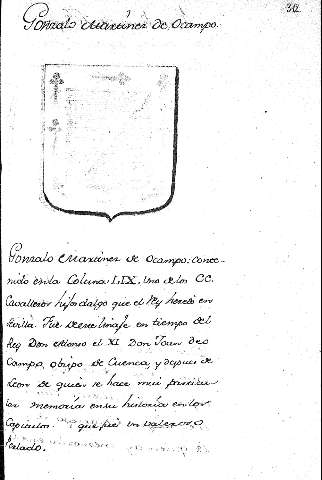 32
Gonzalo Martinez de Ocampo.
Gonzalo Martinez de Ocampo. conte-
nido en la Coluna LIX. Uno de los CC.
Cavalleros hijosdalgo que el Rey heredó en
Sevilla. Fue de este linaje en tiempo del
Rey Don Alonso el XI Don Juan de O
Campo, obispo de Cuenca, y despues de
Leon de quien se hace mui particu-
lar memoria en su historia en los
Capitulos. que fue un valeroso
Perlado.